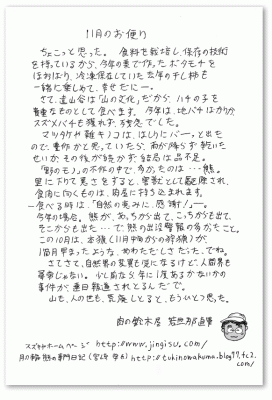 11月のお便り
ちょこっと思った。食料を栽培し、保存の技術
を持っているから、今年の実で作ったボタモチを
ほおばり、冷凍保存していた去年の干し柿も
一緒に楽しめて、幸せだにー。
さて、遠山谷は「山の文化」だから、ハチの子を
貴重なものとして食べます。今年は、地バチばかりか
スズメバチも獲れず、残念でした。
マツタケや雑キノコは、はしりにバーッと出た
ので、豊作かと思っていたら、雨が降らず乾いた
せいか、その後が続かず、結局は不足。
「野のモノ」の不作の中で、今かったのは…熊。
里に下りて悪さをすると、害獣として駆除され、
食肉に向くものは、商店に持ち込まれます。
食べる時は、「自然の恵みに、感謝!」ー。
今年の場合、熊が、あっちから出て、こっちから出て、
そこからも出た…で、熊の出没警報の為かたこと。
この10月は、本猟(11月中旬からの狩猟)が
1箇月早まったような、あわただしさだった、でね。
さてさて、自然界の変異も気になるけど、人間界も
尋常じゃない。少し前なら年に1度あるかないかの
事件が、連日報道されとるんだで。
山も、人の世も、荒廃しとると、もういっど思った。
肉の鈴木屋 若旦那
スズキヤホームページ http://www.jingisu.com/
http://tukinowakuma.blog97.fc2.com/